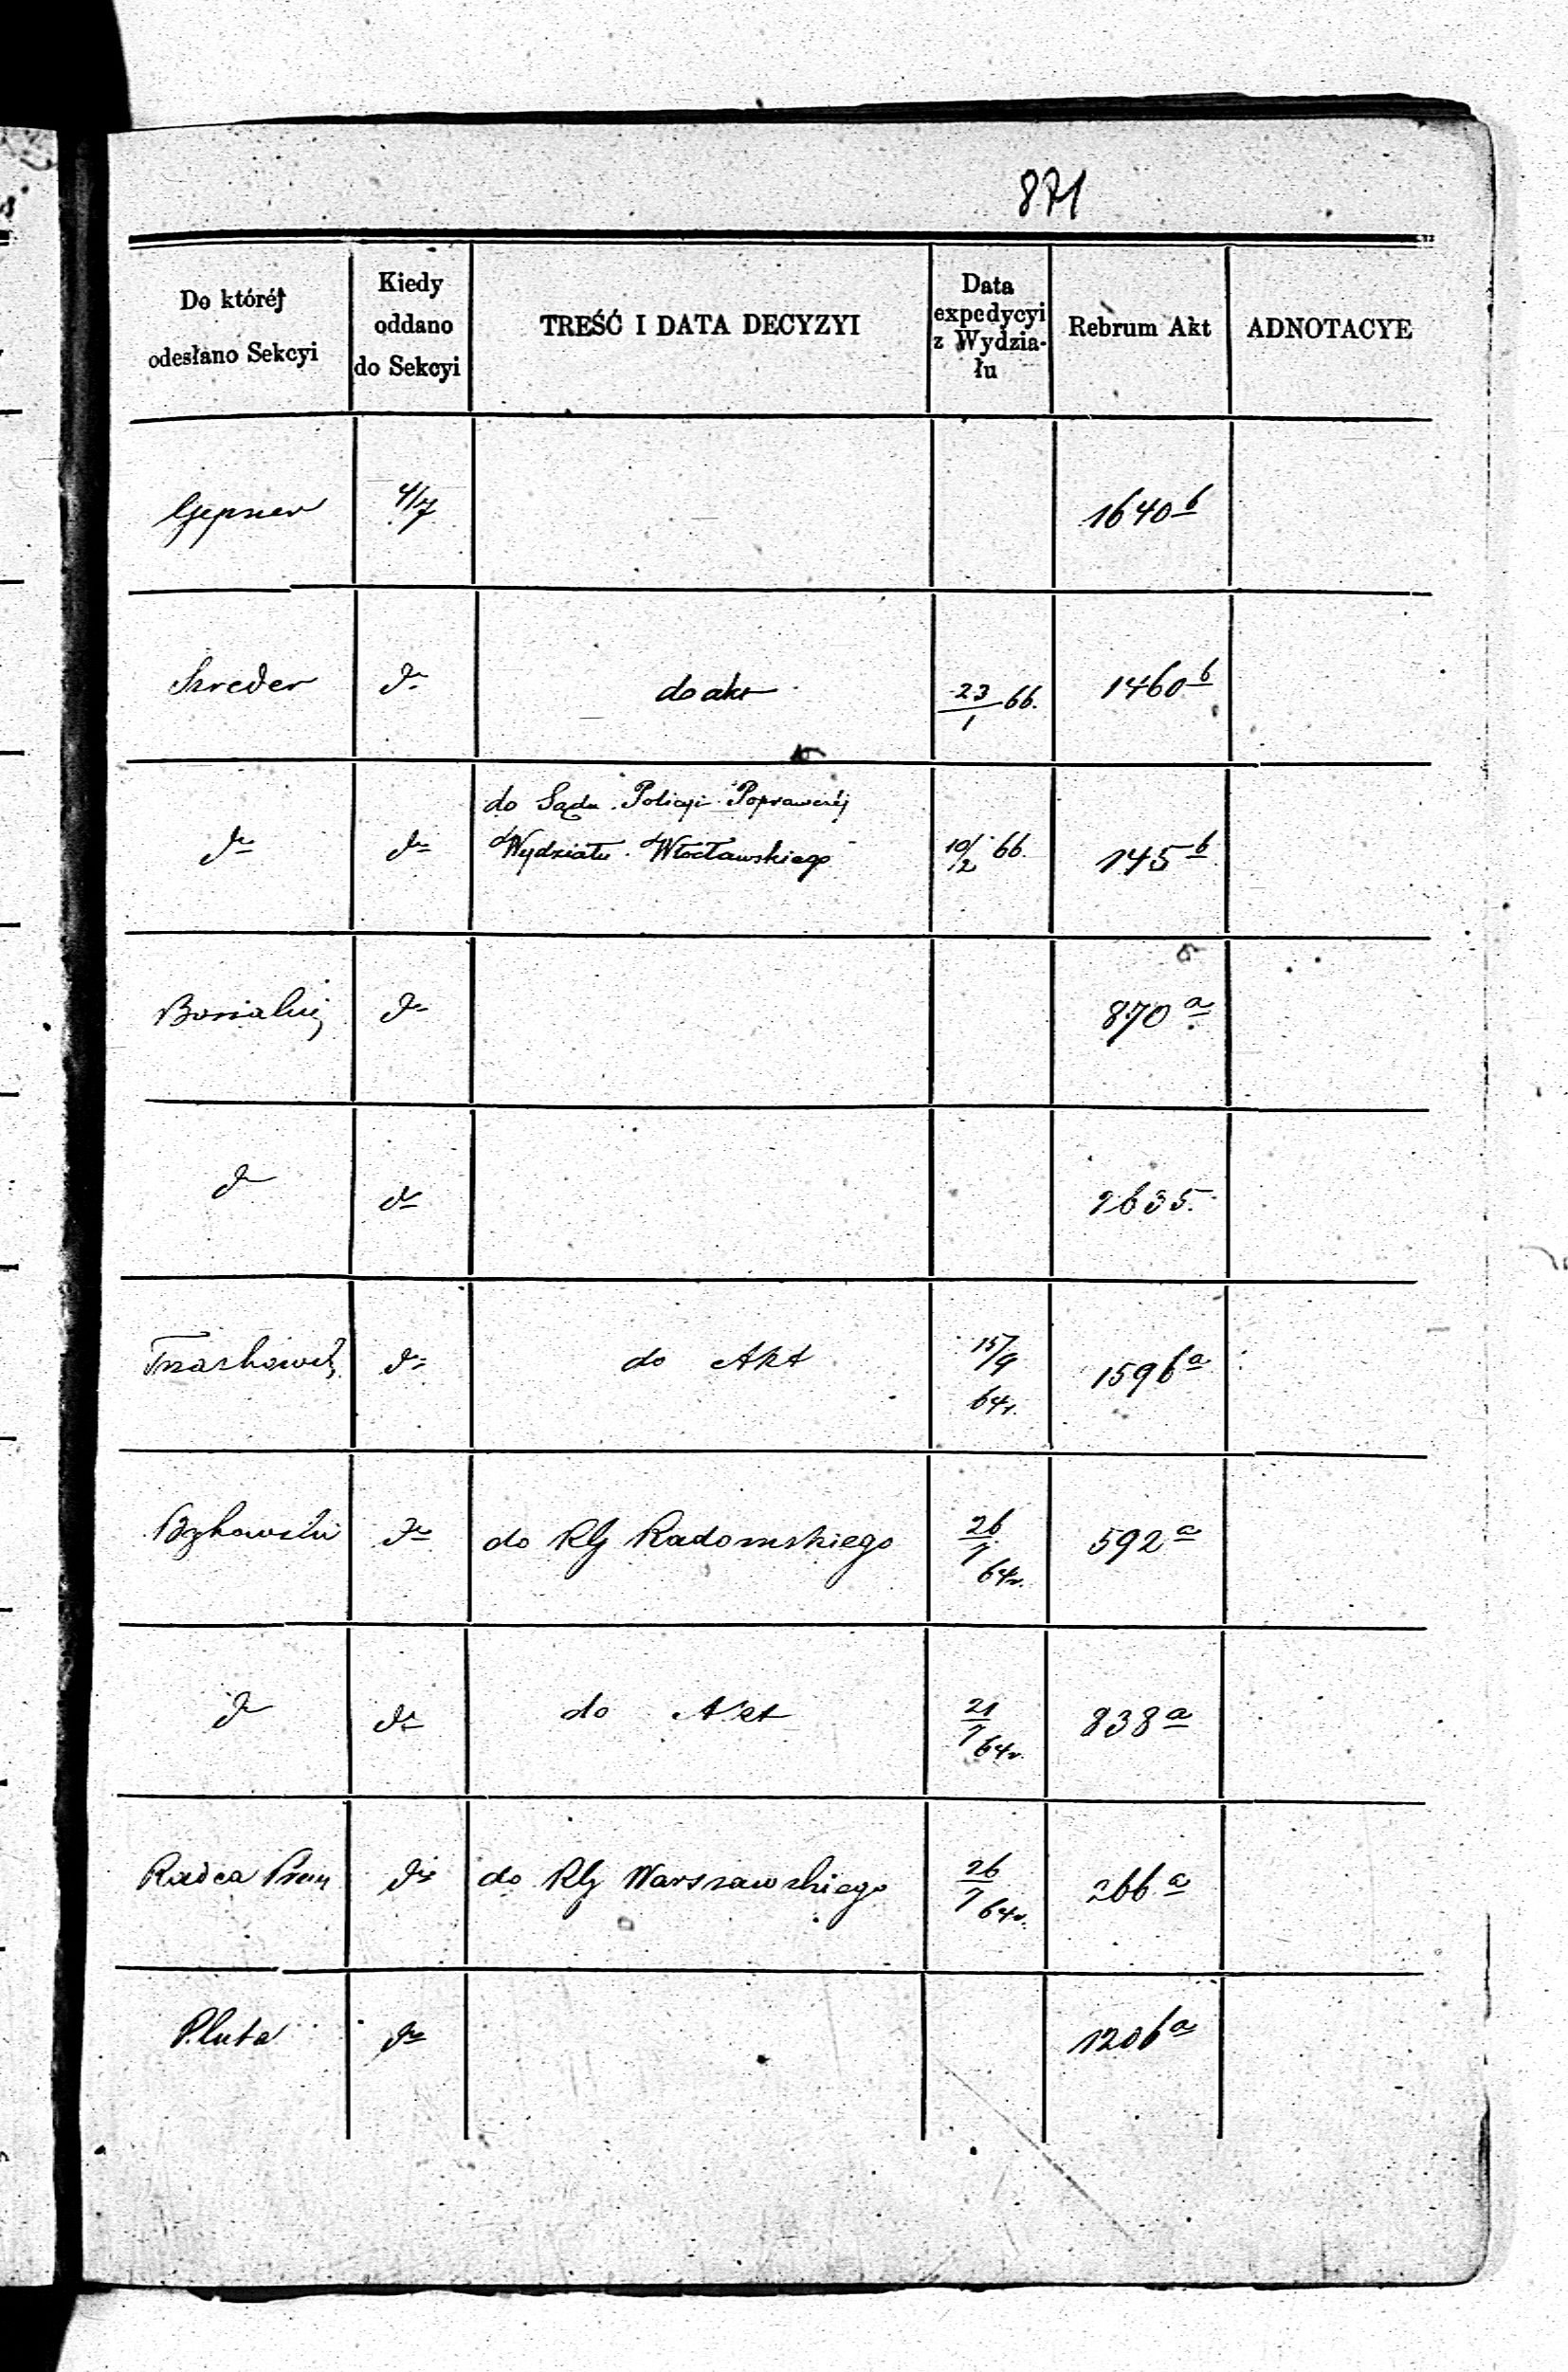 871
Do któréj odesłano Sekcyi
Kiedy oddano do Sekcyi
TREŚĆ I DATA DECYZYI
Data expedycyi z Wydzia-łu
Rebrum Akt
ADNOTACYE
Gepner 4/7 1640 b
Szreder do do akt 23/1 66. 1460 b
do Sądu Policyi Poprawczéj
do do Wydziału Włocławskiego 10/2 66. 145 b
do 870 a
do do 2635.
do do Akt 15/9 64r. 1596 a
do do RG Radomskiego 26/7 64r. 592 a
do do do Akt 21/7 64r. 838 a
Radca do do RG Warszawskiego 26/7 64r. 266 a
Pluta do 1206 a